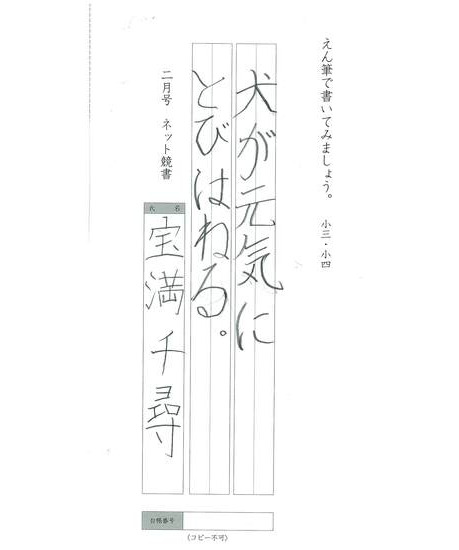 えん筆で書いてみましょう。 小三・小四
犬が元気に
とびはねる。
二月号 ネット競書
氏名
宝満千尋
台帳番号
(コピー不可)